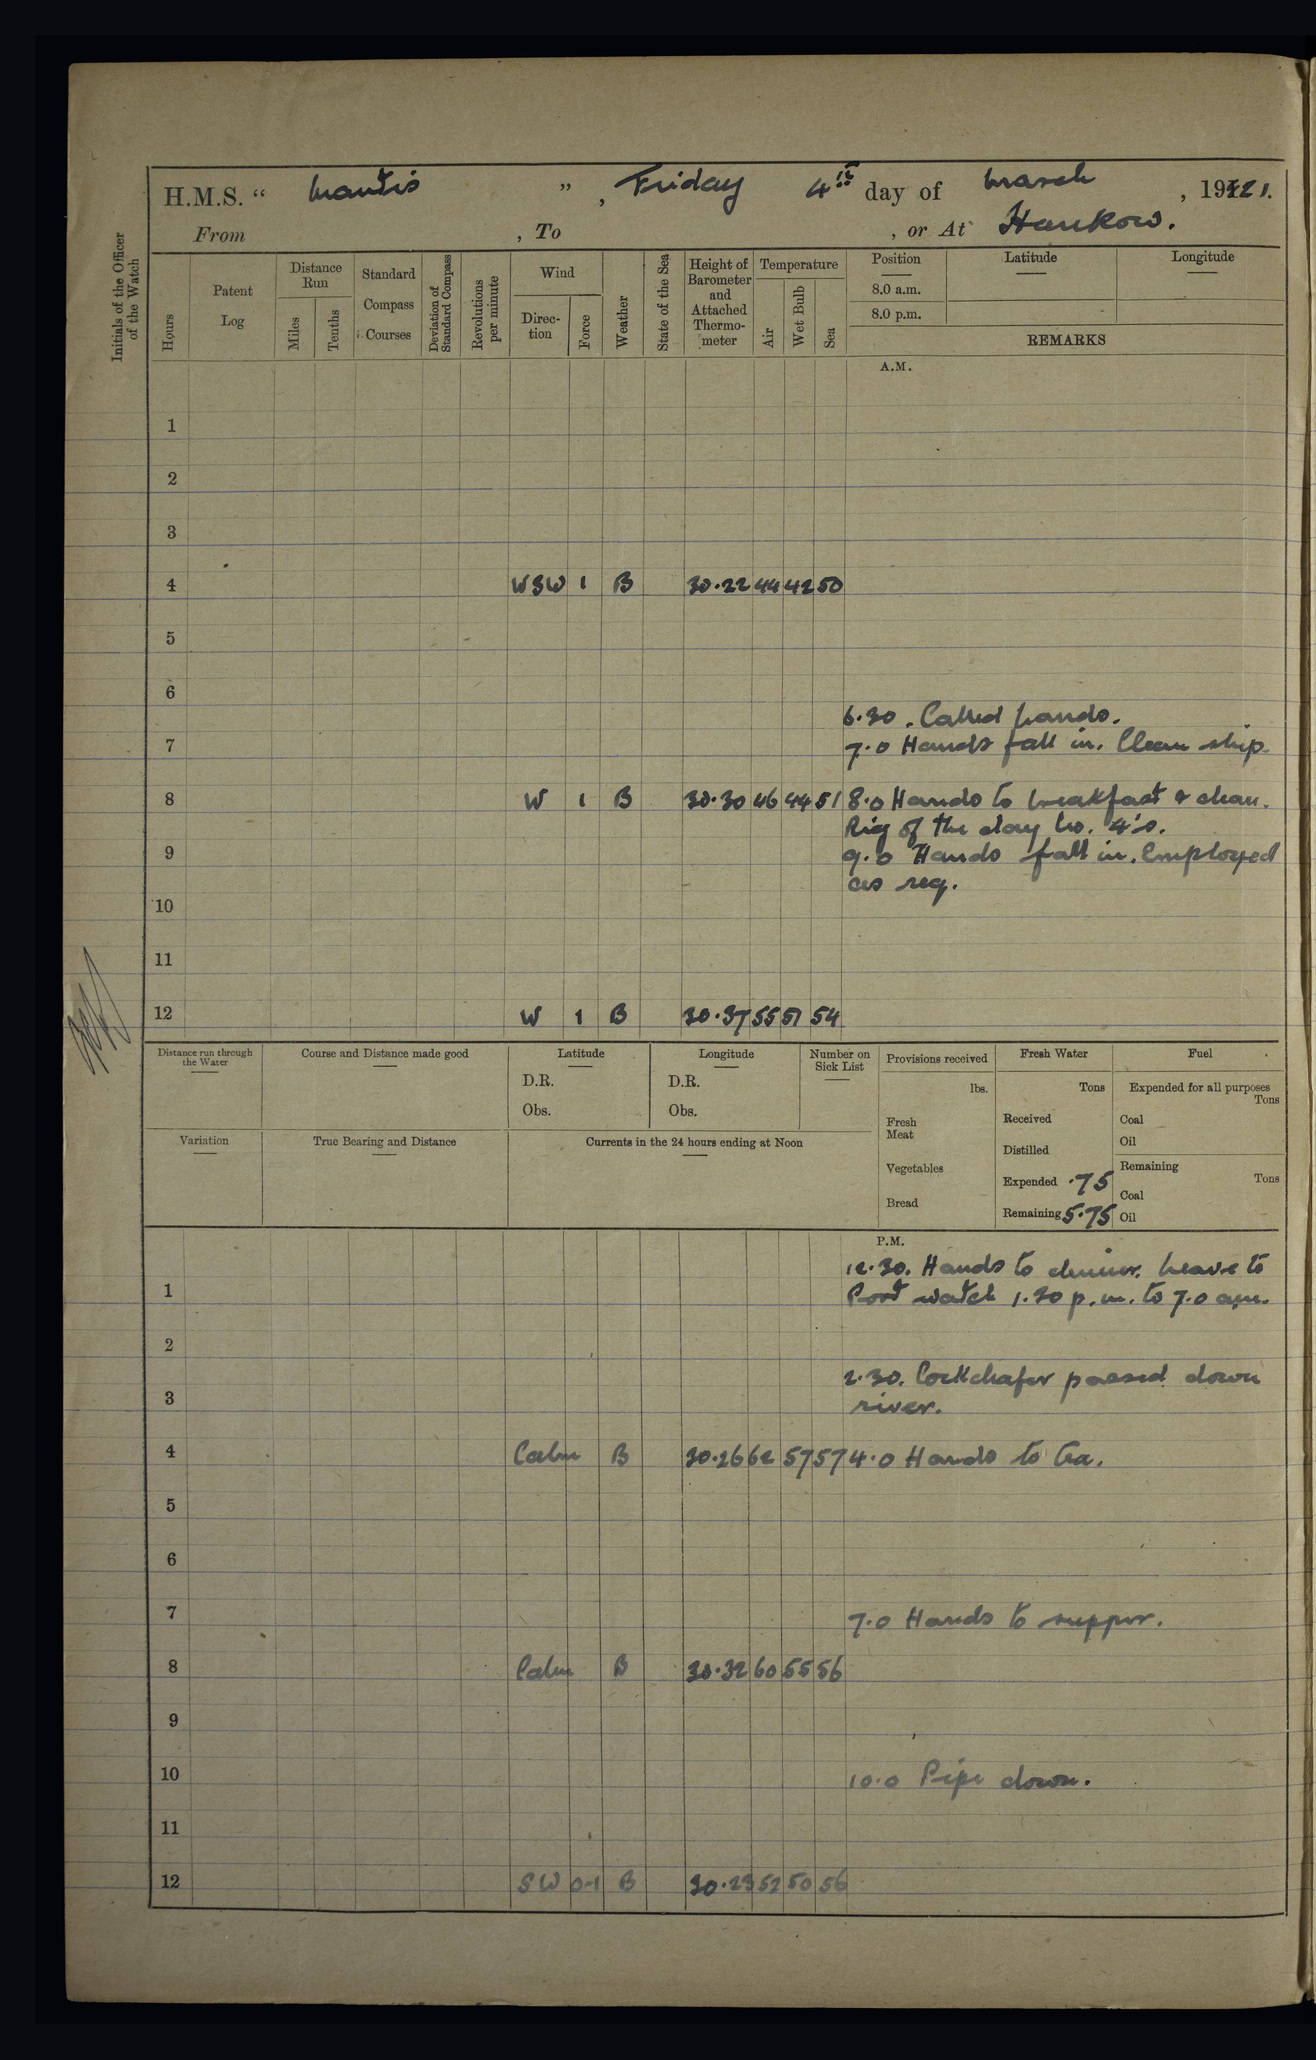 H.M.S. “ Mantis ” , Friday 4th day of March , 1921.
From , To , or At Hankow.
Initials of the Officer of the Watch
Hours
Patent Log
Distance Run
Miles
Tenths
Standard Compass Courses
Deviation of Standard Compass
Revolutions per minute
Wind
Direc-tion
Force
Weather
State of the Sea
Height of Barometer and Attached Thermo-meter
Temperature
Air
Wet Bulb
Sea
Position
8.0 a.m.
8.0 p.m.
Latitude
Longitude
REMARKS
A.M.
1
2
3
4 WSW 1 B 30.22 44 42 50
5
6
6.30. Called hands.
7 7.0 Hands fall in. Clean ship.
8 W 1 B 30.30 46 44 51 8.0 Hands to breakfast & clean.
Rig of the day No. 4's.
9 9.0 Hands fall in. Employed
as req.
10
11
12 W 1 B 30.37 55 51 54
Distance run through the Water
Course and Distance made good
Latitude
D.R.
Obs.
Longitude
D.R.
Obs.
Number on Sick List
Provisions received
lbs.
Fresh Meat
Vegetables
Bread
Fresh Water
Tons
Received
Distilled
Expended .75
Remaining 5.75
Fuel
Expended for all purposes
Tons
Coal
Oil
Remaining
Tons
Coal
Oil
Variation
True Bearing and Distance
Currents in the 24 hours ending at Noon
P.M.
12.30. Hands to dinner. Leave to
1 Port watch 1.30 p.m. to 7.0 a.m.
2
2.30. Cockchafer passed down
3 river.
4 Calm B 30.26 62 57 57 4.0 Hands to tea.
5
6
7 7.0 Hands to supper.
8 Calm B 30.32 60 55 56
9
10 10.0 Pipe down.
11
12 SW 0-1 B 30.23 52 50 56